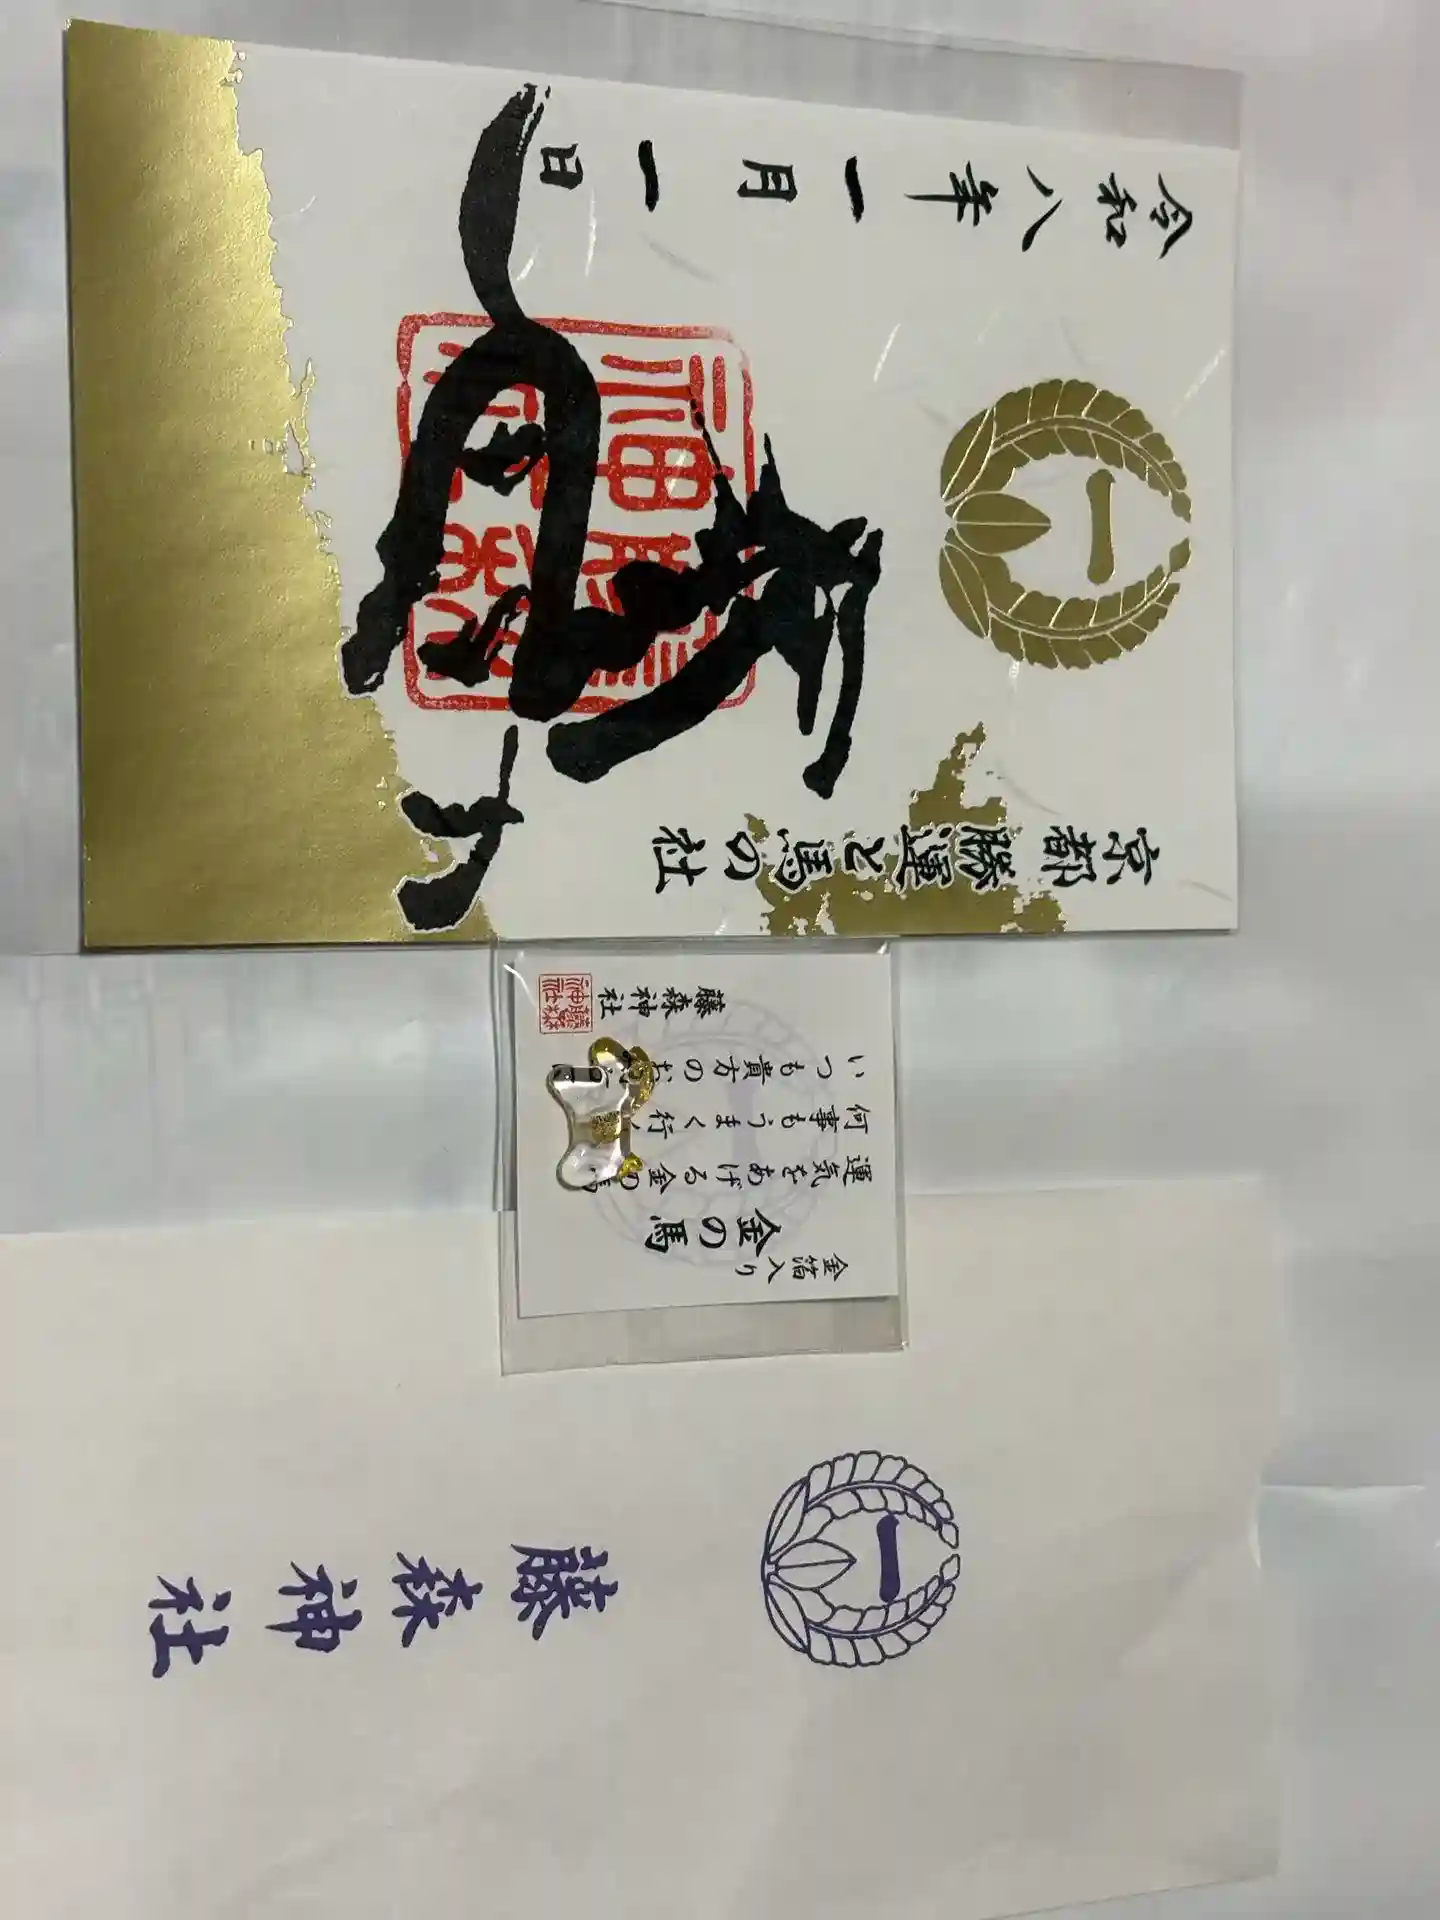 京都 勝運と馬の社
一
令和八年一月一日
藤森神社
金箔入り
金の馬
運気をあげる金の馬
何事もうまく行く
いつも貴方のお
藤森神社
藤森神社
一
藤森神社